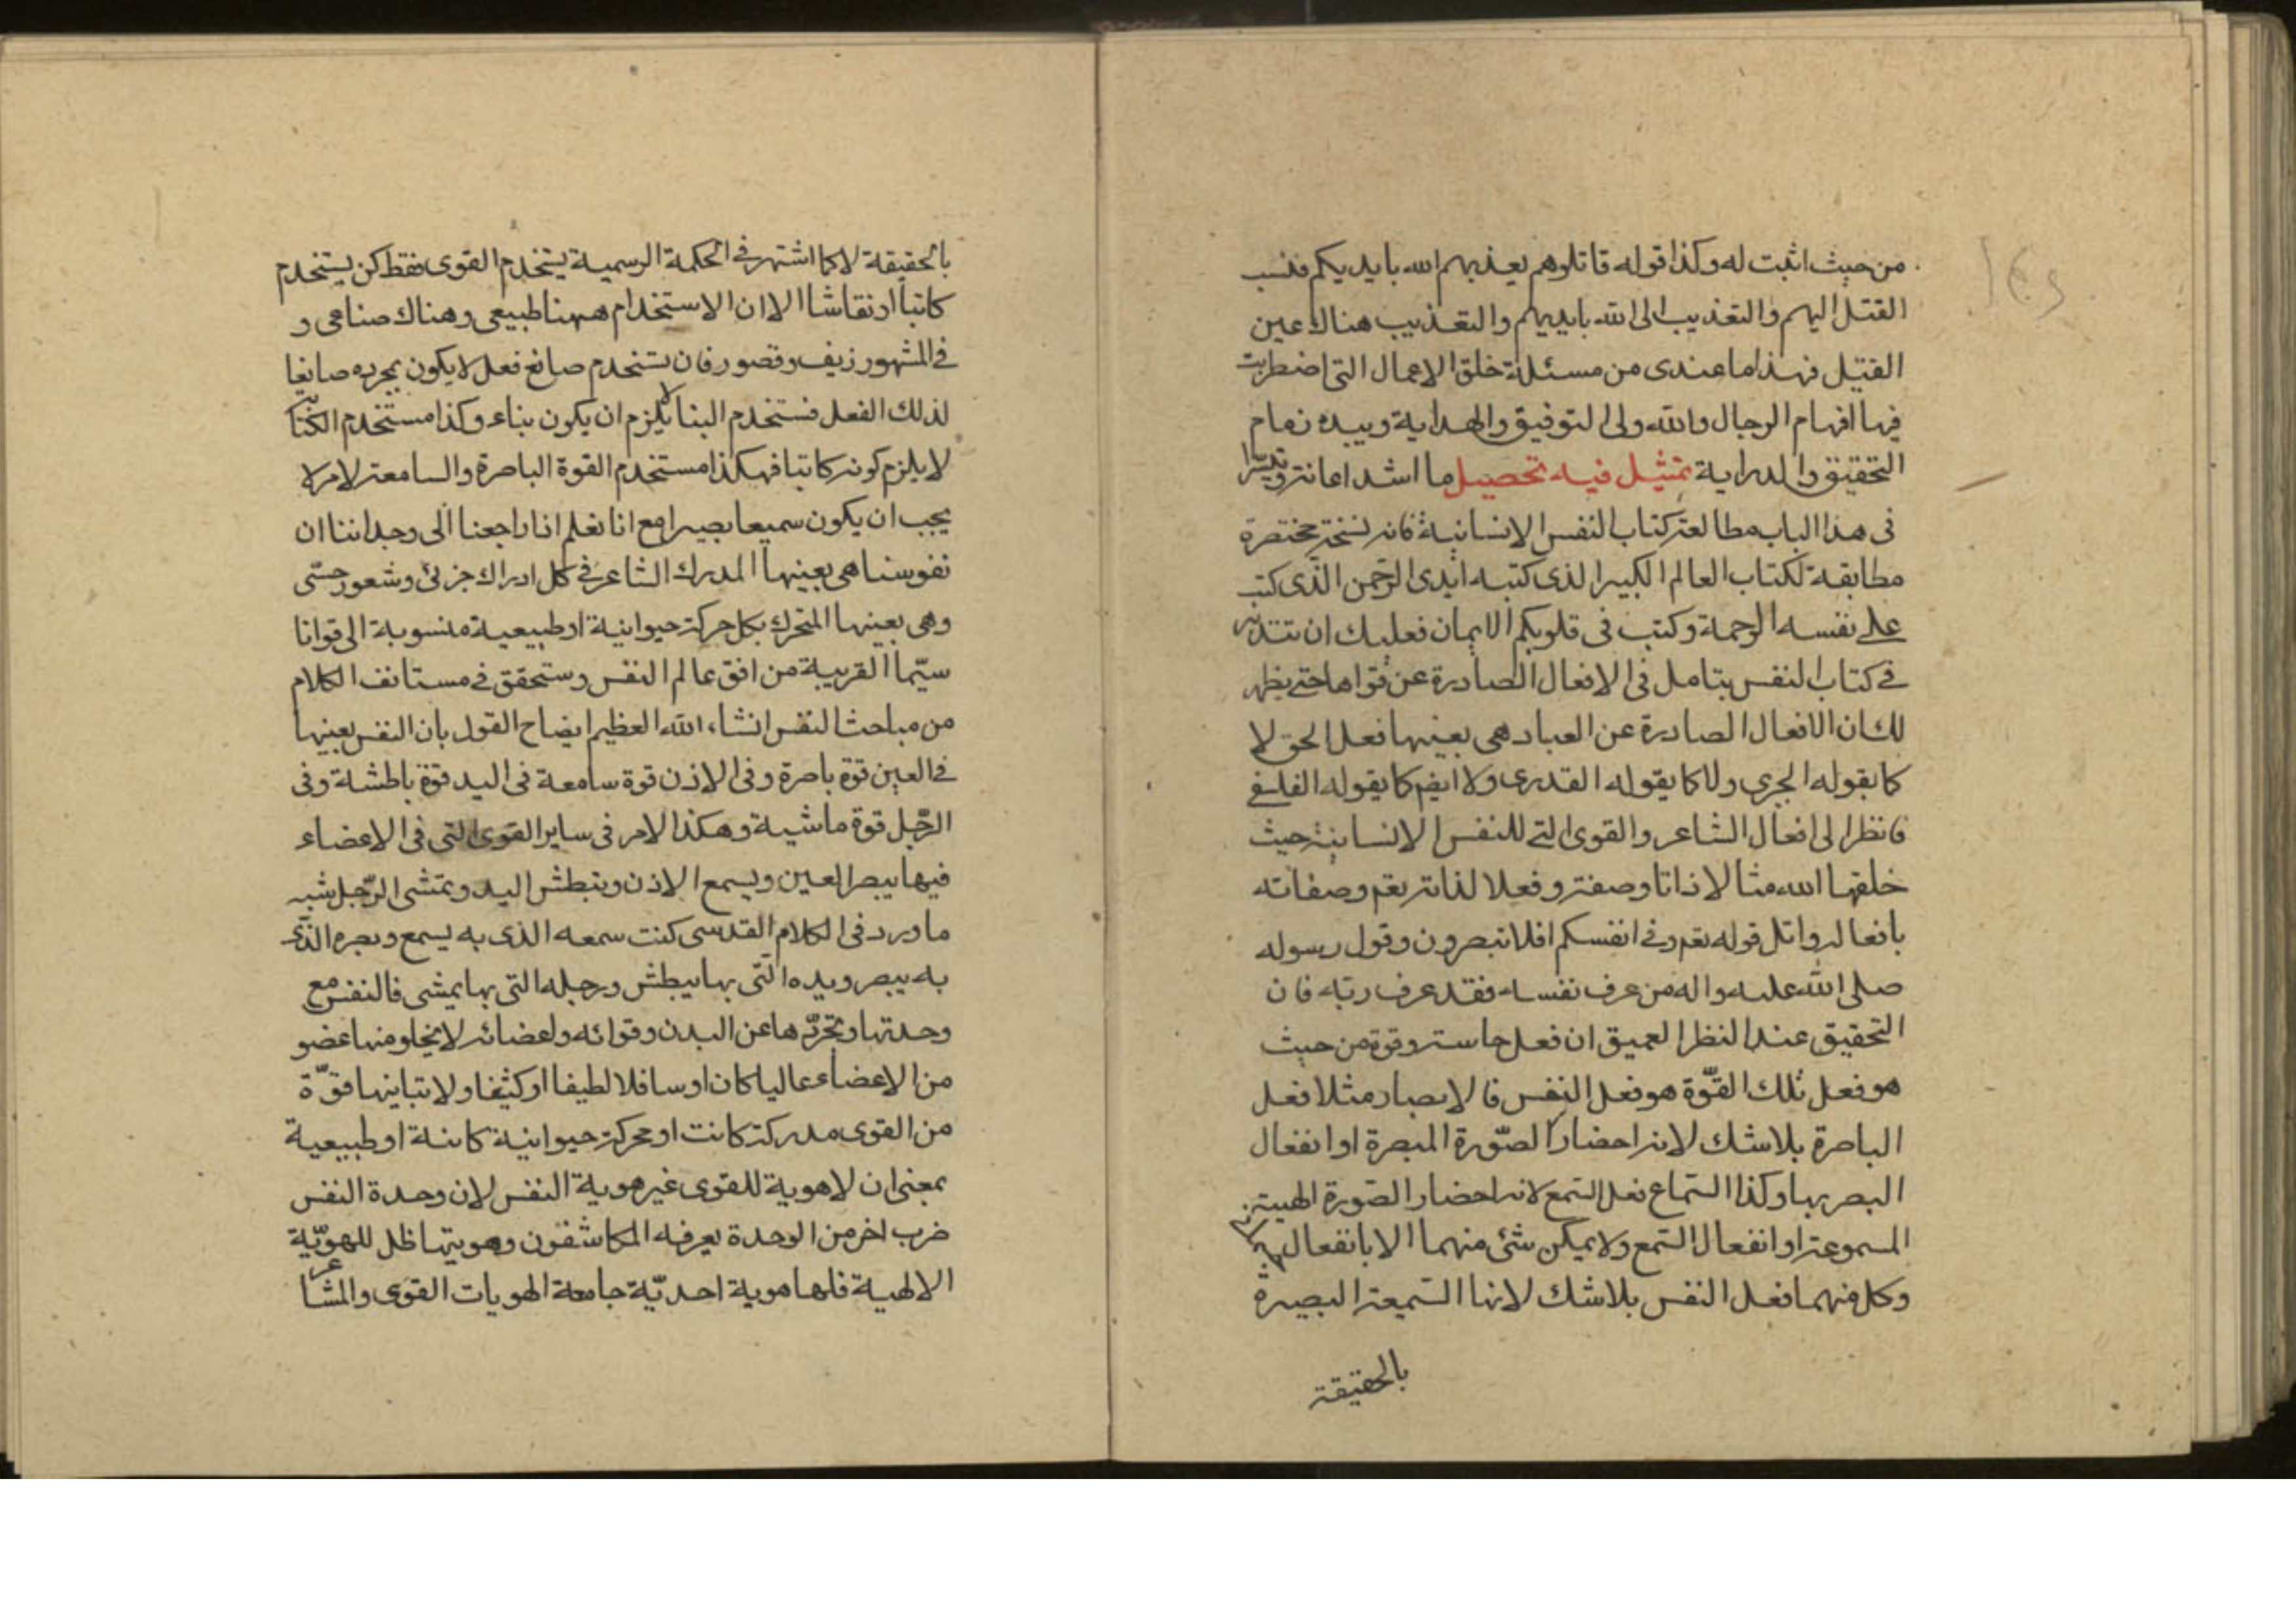 من حيث اثبت له وكذا قوله قاتلوهم يعذبهم الله بايديكم فنسب
القتل اليهم والتعذيب الى الله بايديهم والتعذيب هناك عين
القتل فهذا ما عندى من مسئلة خلق الاعمال التى اضطربت
فيها افهام الرجال والله ولى التوفيق والهداية وبيده زمام
التحقيق والدراية تمثيل فيه تحصيل ما اشد اعانة
فى هذا الباب مطالعة كتاب النفس الانسانية فانه نسخة مختصرة
مطابقة لكتاب العالم الكبير الذى كتبه ايدى الرحمن الذى كتب
على نفسه الرحمة وكتب فى قلوبكم الايمان فعليك ان تتدبر
فى كتاب النفس بتامل فى الافعال الصادرة عن قواها حتى يظهر
لك ان الافعال الصادرة عن العباد هى بعينها فعل الحق لا
كما يقوله الجبرى ولا كما يقوله القدرى ولا ايضا كما يقوله الفلسفى
فانظر الى افعال المشاعر والقوى التى للنفس الانسانية حيث
خلقها الله مثالا لاذاتا وصفة وفعلا لذاته تعم وصفاته
بافعاله واتل قوله تعم وفى انفسكم افلا تبصرون وقول رسوله
صلى الله عليه واله من عرف نفسه فقد عرف ربّه فان
التحقيق عند النظر العميق ان فعل حاسة وقوة من حيث
هو فعل تلك القوّة هو فعل النفس فالابصار مثلا فعل
الباصرة بلاشك لانه احضار الصّورة المبصرة او انفعال
البصر بها وكذا السّماع فعل السّمع لانه احضار الصّورة الهيئة
المسموعة او انفعال السّمع ولا يمكن شئ منهما الا بانفعال
وكل منهما فعل النفس بلاشك لانها السّميعة البصيرة
بالحقيقة
بالحقيقة لا كما اشتهر فى الحكمة الرسمية يستخدم القوى فقط كمن يستخدم
كاتبا او نقاشا الا ان الاستخدام ههنا طبيعى وهناك صناعى و
فى المشهور زيف وقصور فان تستخدم صانع فعل لا يكون بمجرده صانعا
لذلك الفعل فمستخدم البنا لا يلزم ان يكون بناء وكذا مستخدم الكتّاب
لا يلزم كونه كاتبا فهكذا مستخدم القوة الباصرة والسامعة لا
يجب ان يكون سميعا بصيرا مع انا نعلم اذا راجعنا الى وجداننا ان
نفوسنا هى بعينها المدرك الشاعر فى كل ادراك جزئى وشعور حسّى
وهى بعينها المتحرك بكل حركة حيوانية او طبيعية منسوبة الى قوانا
سيّما القريبة من افق عالم النفس وستحقق فى مستانف الكلام
من مباحث النفس انشاء الله العظيم ايضاح القول بان النفس بعينها
فى العين قوة باصرة وفى الاذن قوة سامعة فى اليد قوة باطشة وفى
الرّجل قوة ماشية وهكذا الامر فى ساير القوى التى فى الاعضاء
فيها يبصر العين ويسمع الاذن وتبطش اليد وتمشى الرّجل شبه
ما ورد فى الكلام القدسى كنت سمعه الذى به يسمع وبصره الذى
به يبصر ويده التى بها يبطش ورجله التى بها يمشى فالنفس مع
وحدتها وتجرّدها عن البدن وقوائه واعضائه لا يخلو منها عضو
من الاعضاء عاليا كان او سافلا لطيفا او كثيفا ولا تباينها قوّة
من القوى مدركة كانت او محركة حيوانية كائنة او طبيعية
بمعنى ان لا هوية للقوى غير هوية النفس لان وحدة النفس
ضرب اخر من الوحدة يعرفه المكاشفون وهويتها ظل للهويّة
الالهية فلها هوية احديّة جامعة الهويات القوى والمشاعر